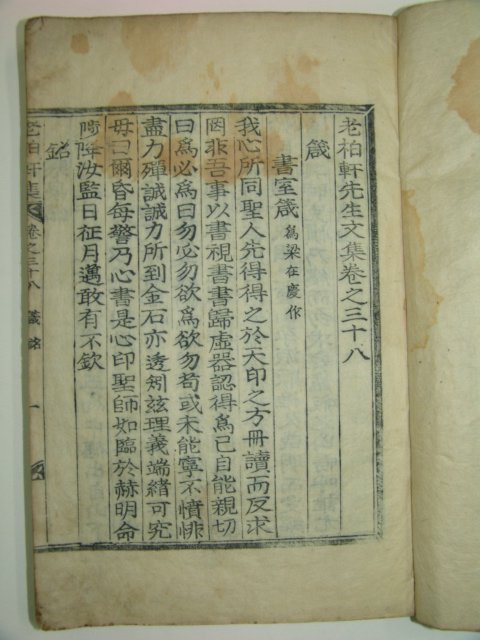 老柏軒先生文集卷之三十八
箴
書室箴 爲梁在慶作
我心所同聖人先得得之於天印之方冊讀而反求
罔非吾事以書視書書歸虛器認得爲已自能親切
曰爲必爲曰勿必勿欲爲欲勿苟或未能寧不憤悱
盡力殫誠誠力所到金石亦透矧玆理義端緖可究
毋曰爾昏每警乃心書是心印聖師如臨於赫明命
陟降汝監日征月邁敢有不欽
銘
老柏軒集 卷之三十八 箴銘 一